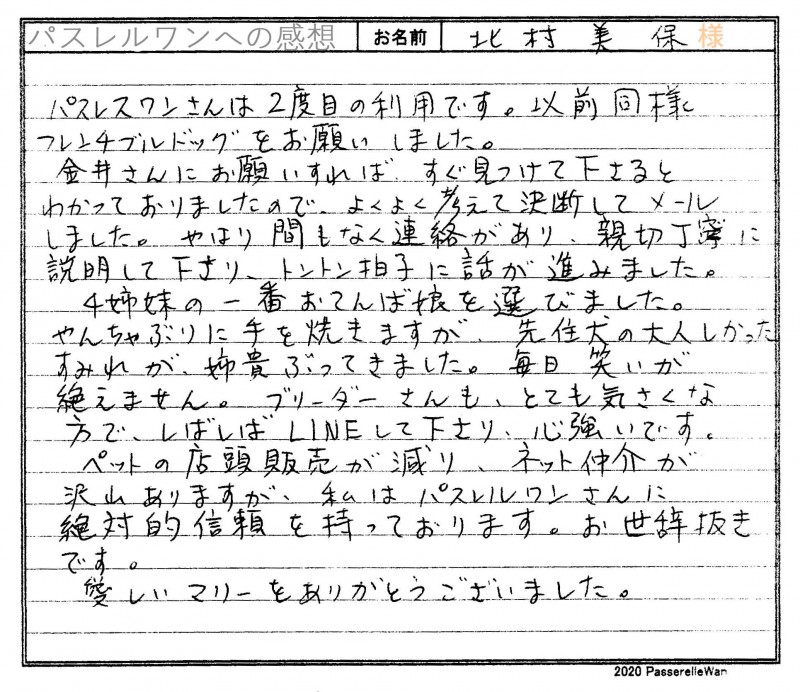 パスレルワンへの感想 お名前 北村美保様
パスレスワンさんは2度目の利用です。以前同様に
フレンチブルドッグをお願いしました。
金井さんにお願いすれば、すぐ見つけて下さると
わかっておりましたので、よくよく考えて決断してメール
しました。やはり間もなく連絡があり、親切丁寧に
説明して下さり、トントン拍子に話が進みました。
4姉妹の一番おてんば娘を選びました。
やんちゃぶりに手を焼きますが、先住犬の大人しかった
すみれが、姉貴ぶってきました。毎日笑いが
絶えません。ブリーダーさんも、とても気さくな
方で、しばしばLINEして下さり、心強いです。
ペットの店頭販売が減り、ネット仲介が
沢山ありますが、私はパスレルワンさんに
絶対的信頼を持っております。お世辞抜き
です。
愛しいマリーをありがとうございました。
2020 PasserelleWan